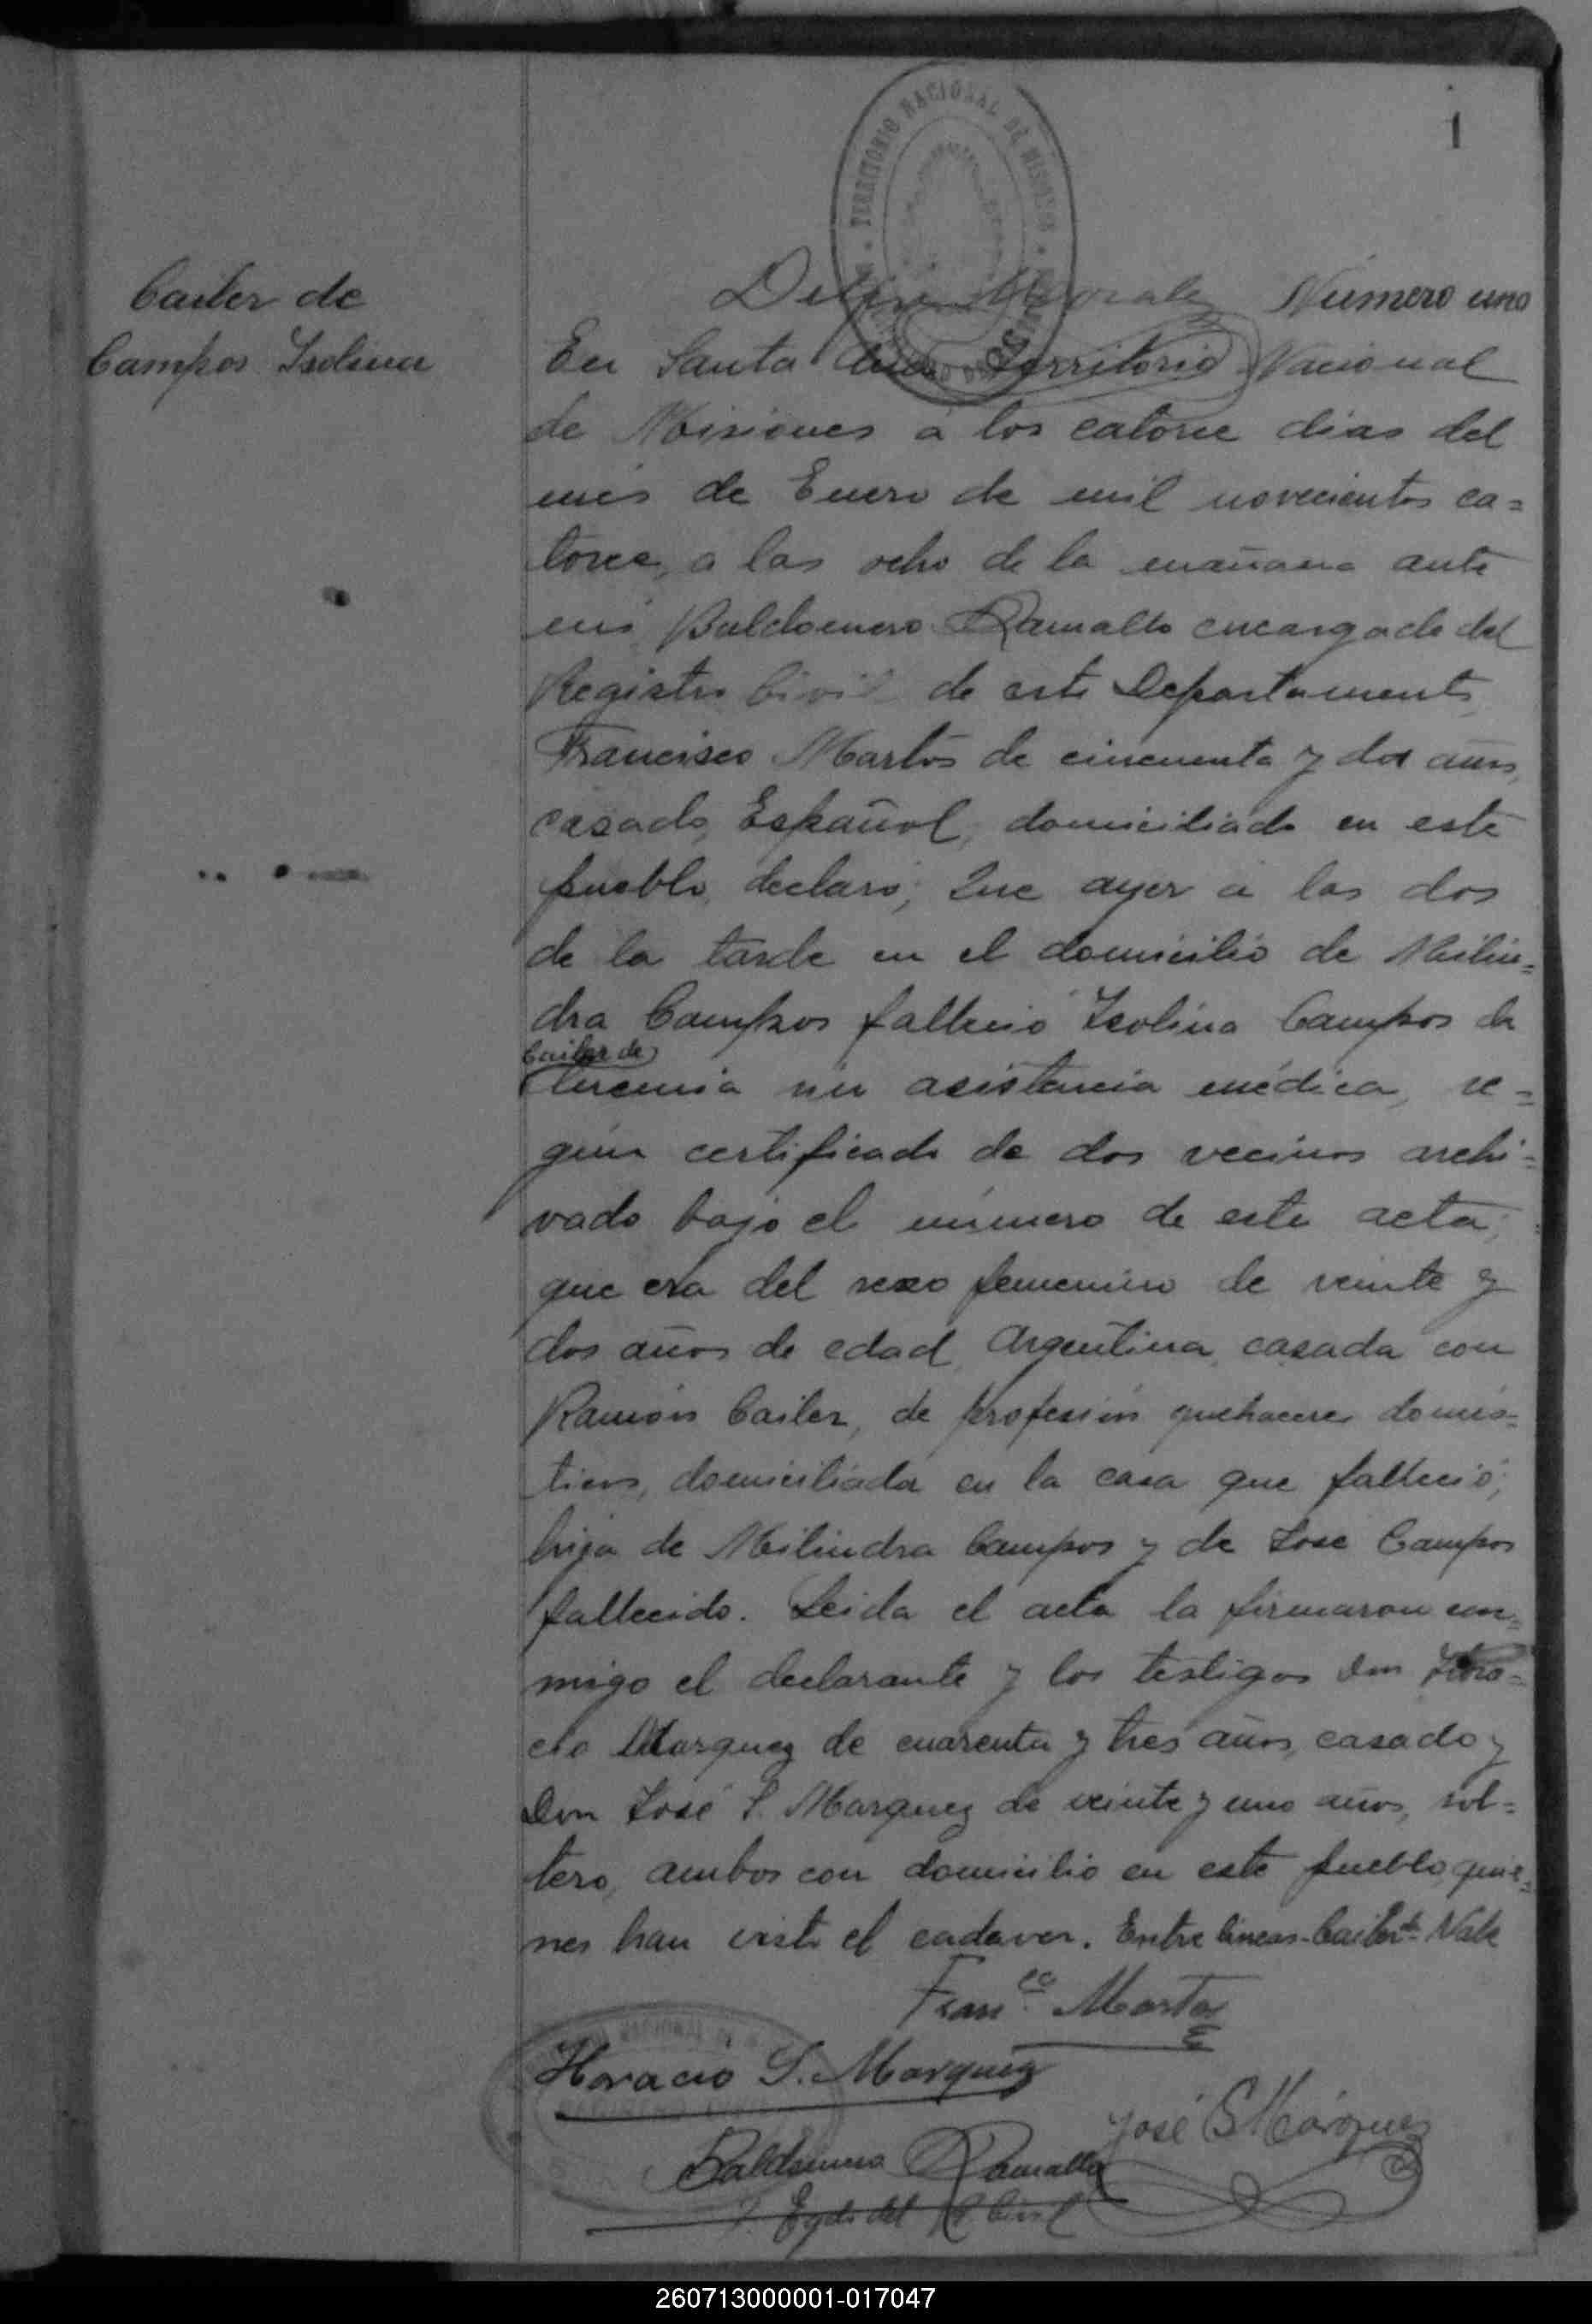 1
TERRITORIO NACIONAL DE MISIONES
Cailer de
Campos Isolina
Número uno
En Santa Ana Territorio Nacional
de Misiones á los catorce dias del
més de Enero de mil novecientos ca=
torce, a las ocho de la mañana ante
mi Baldomero Ramallo encargado del
Registro Civil de este Departamento
Francisco Martos de cincuenta y dos años,
casado, Español, domiciliado en este
pueblo, declaró; Que ayer á las dos
de la tarde en el domicilio de Milin=
dra Campos falleció Isolina Campos de
Cailer de
Uremia sin asistencia médica, se=
gún certificado de dos vecinos archi=
vado bajo el número de este acta;
que era del sexo femenino de veinte y
dos años de edad, Argentina, casada con
Ramón Cailer, de profesión quehaceres domés=
ticos, domiciliada en la casa que falleció;
hija de Milindra Campos y de José Campos
fallecido. Leida el acta la firmaron con=
migo el declarante y los testigos Don Hora=
cio Marquez de cuarenta y tres años, casado y
Don José S. Marquez de veinte y uno años, sol=
tero, ambos con domicilio en este pueblo, quie=
nes han visto el cadaver. Entre lineas-Cailer de-Vale
Fran.co Martos
Horacio S. Marquez
José S Márquez
Baldomero Ramallo
Egdo del R Civil
260713000001-017047